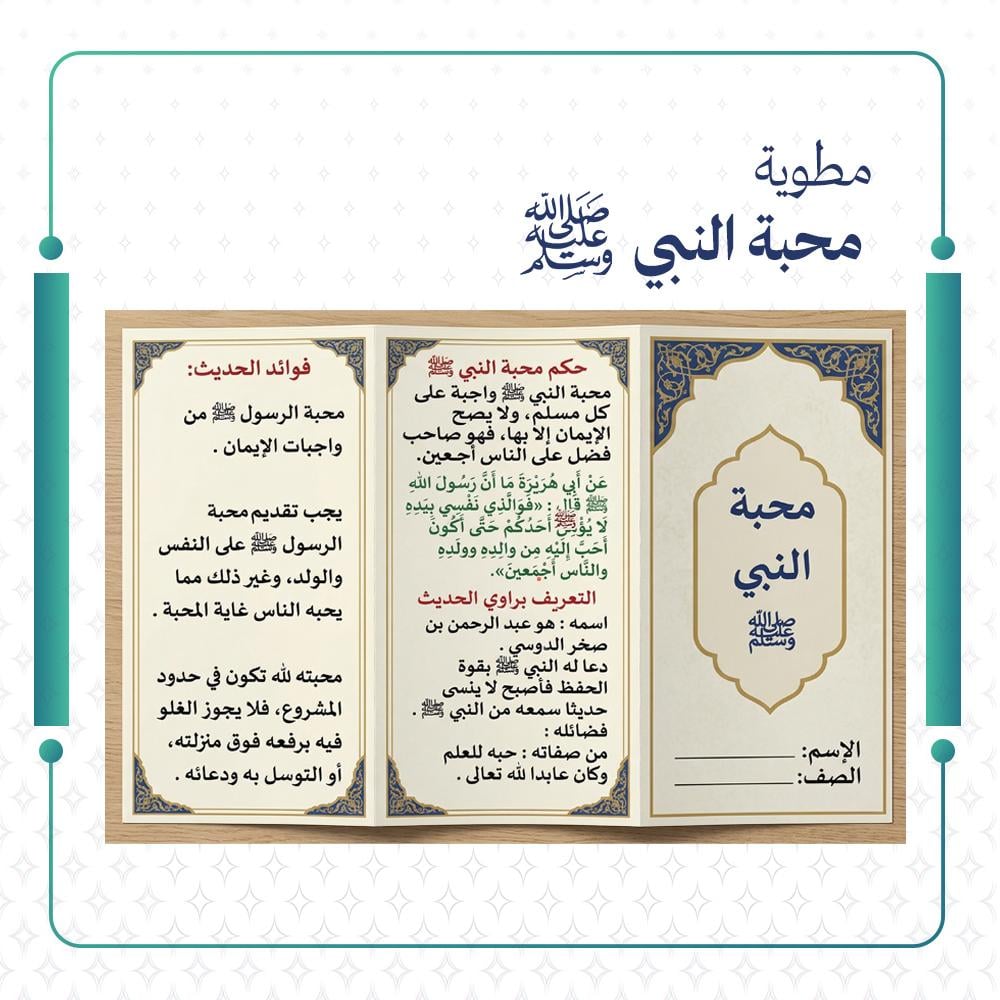 مطوية
محبة النبي ﷺ
محبة
النبي
ﷺ
الإسم: ـــــــــــــ
الصف: ـــــــــــــ
حكم محبة النبي ﷺ
محبة النبي ﷺ واجبة على
كل مسلم، ولا يصح
الإيمان إلا بها، فهو صاحب
فضل على الناس أجمعين.
عَنْ أَبِي هُرَيْرَةَ مَا أَنَّ رَسُولَ اللهِ
ﷺ قَالَ : «فَوَالَّذِي نَفْسِي بِيَدِهِ
لَا يُؤْمِنُ ﷺ أَحَدُكُمْ حَتَّى أَكُونَ
أَحَبَّ إِلَيْهِ مِن والِدِهِ وَوَلَدِهِ
والنَّاس أَجْمَعينَ».
التعريف براوي الحديث
اسمه : هو عبد الرحمن بن
صخر الدوسي .
دعا له النبي ﷺ بقوة
الحفظ فأصبح لا ينسى
حديثا سمعه من النبي ﷺ .
فضائله :
من صفاته : حبه للعلم
وكان عابدا لله تعالى .
فوائد الحديث:
محبة الرسول ﷺ من
واجبات الإيمان .
يجب تقديم محبة
الرسول ﷺ على النفس
والولد، وغير ذلك مما
يحبه الناس غاية المحبة .
محبته لله تكون في حدود
المشروع، فلا يجوز الغلو
فيه برفعه فوق منزلته،
أو التوسل به ودعائه .